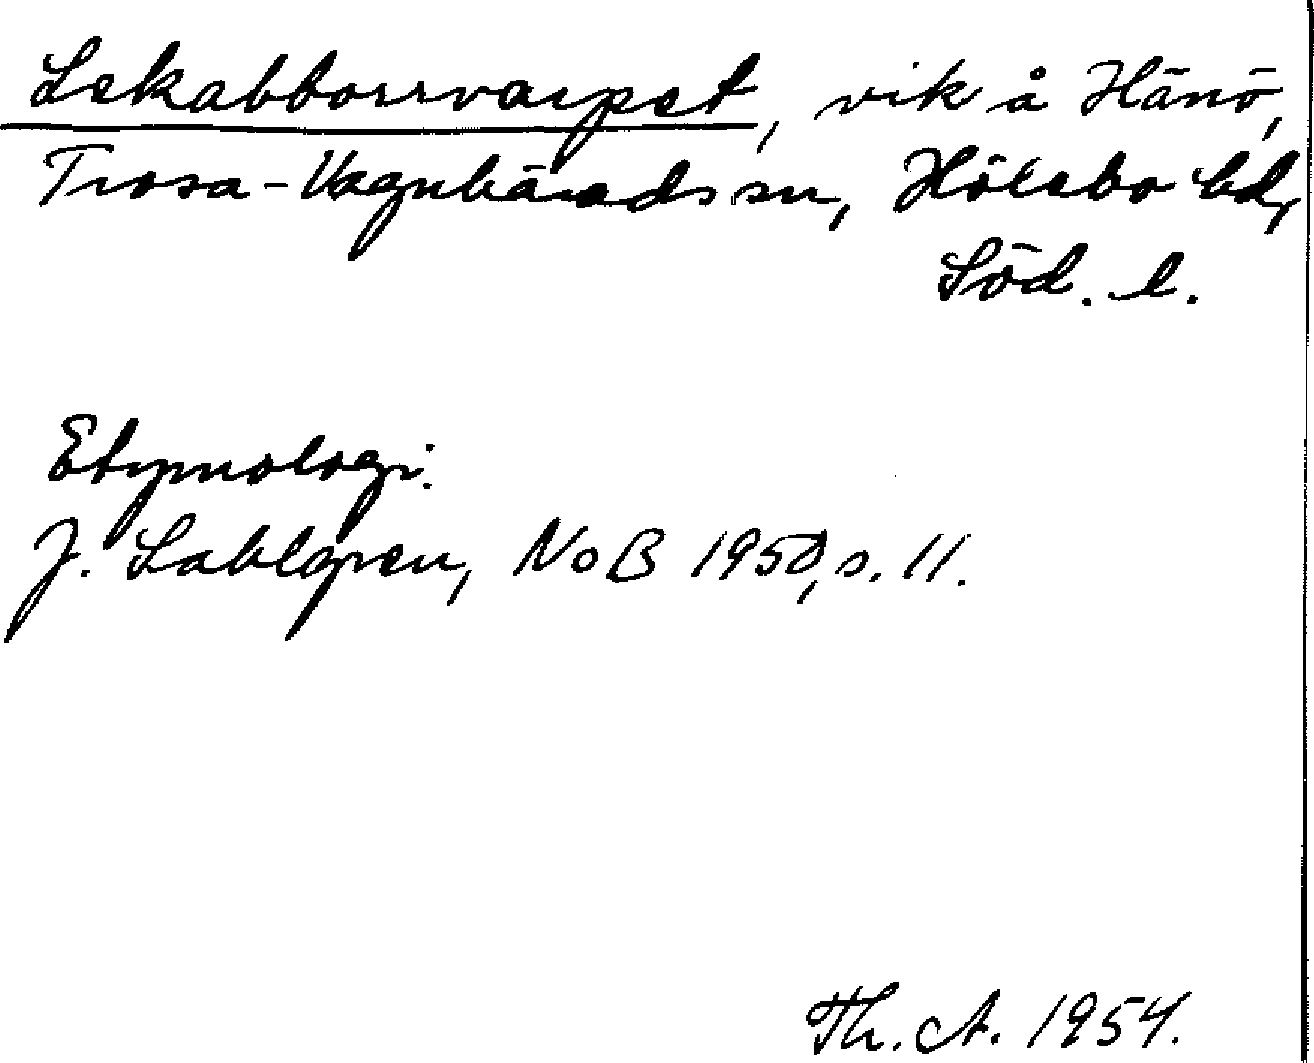 Lekabborrvarpet, vik å Hånö,
Trosa-Vagnhärads sn, Hölebo hd,
Söd. l.
Etymologi.
J. Sahlgren, NoB 1950, s. 11.
Th. A. 1954.